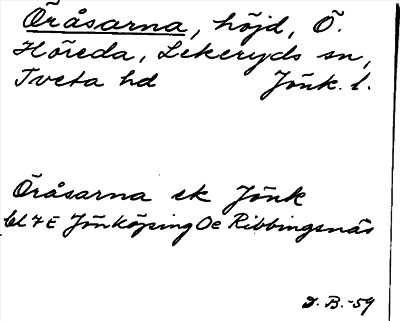 Öråsarna, höjd, Ö.
Höreda, Lekeryds sn,
Tveta hd Jönk. l.
Öråsarna ek Jönk
bl 7 E Jönköping Oe Ribbingsnäs
J. B. -59